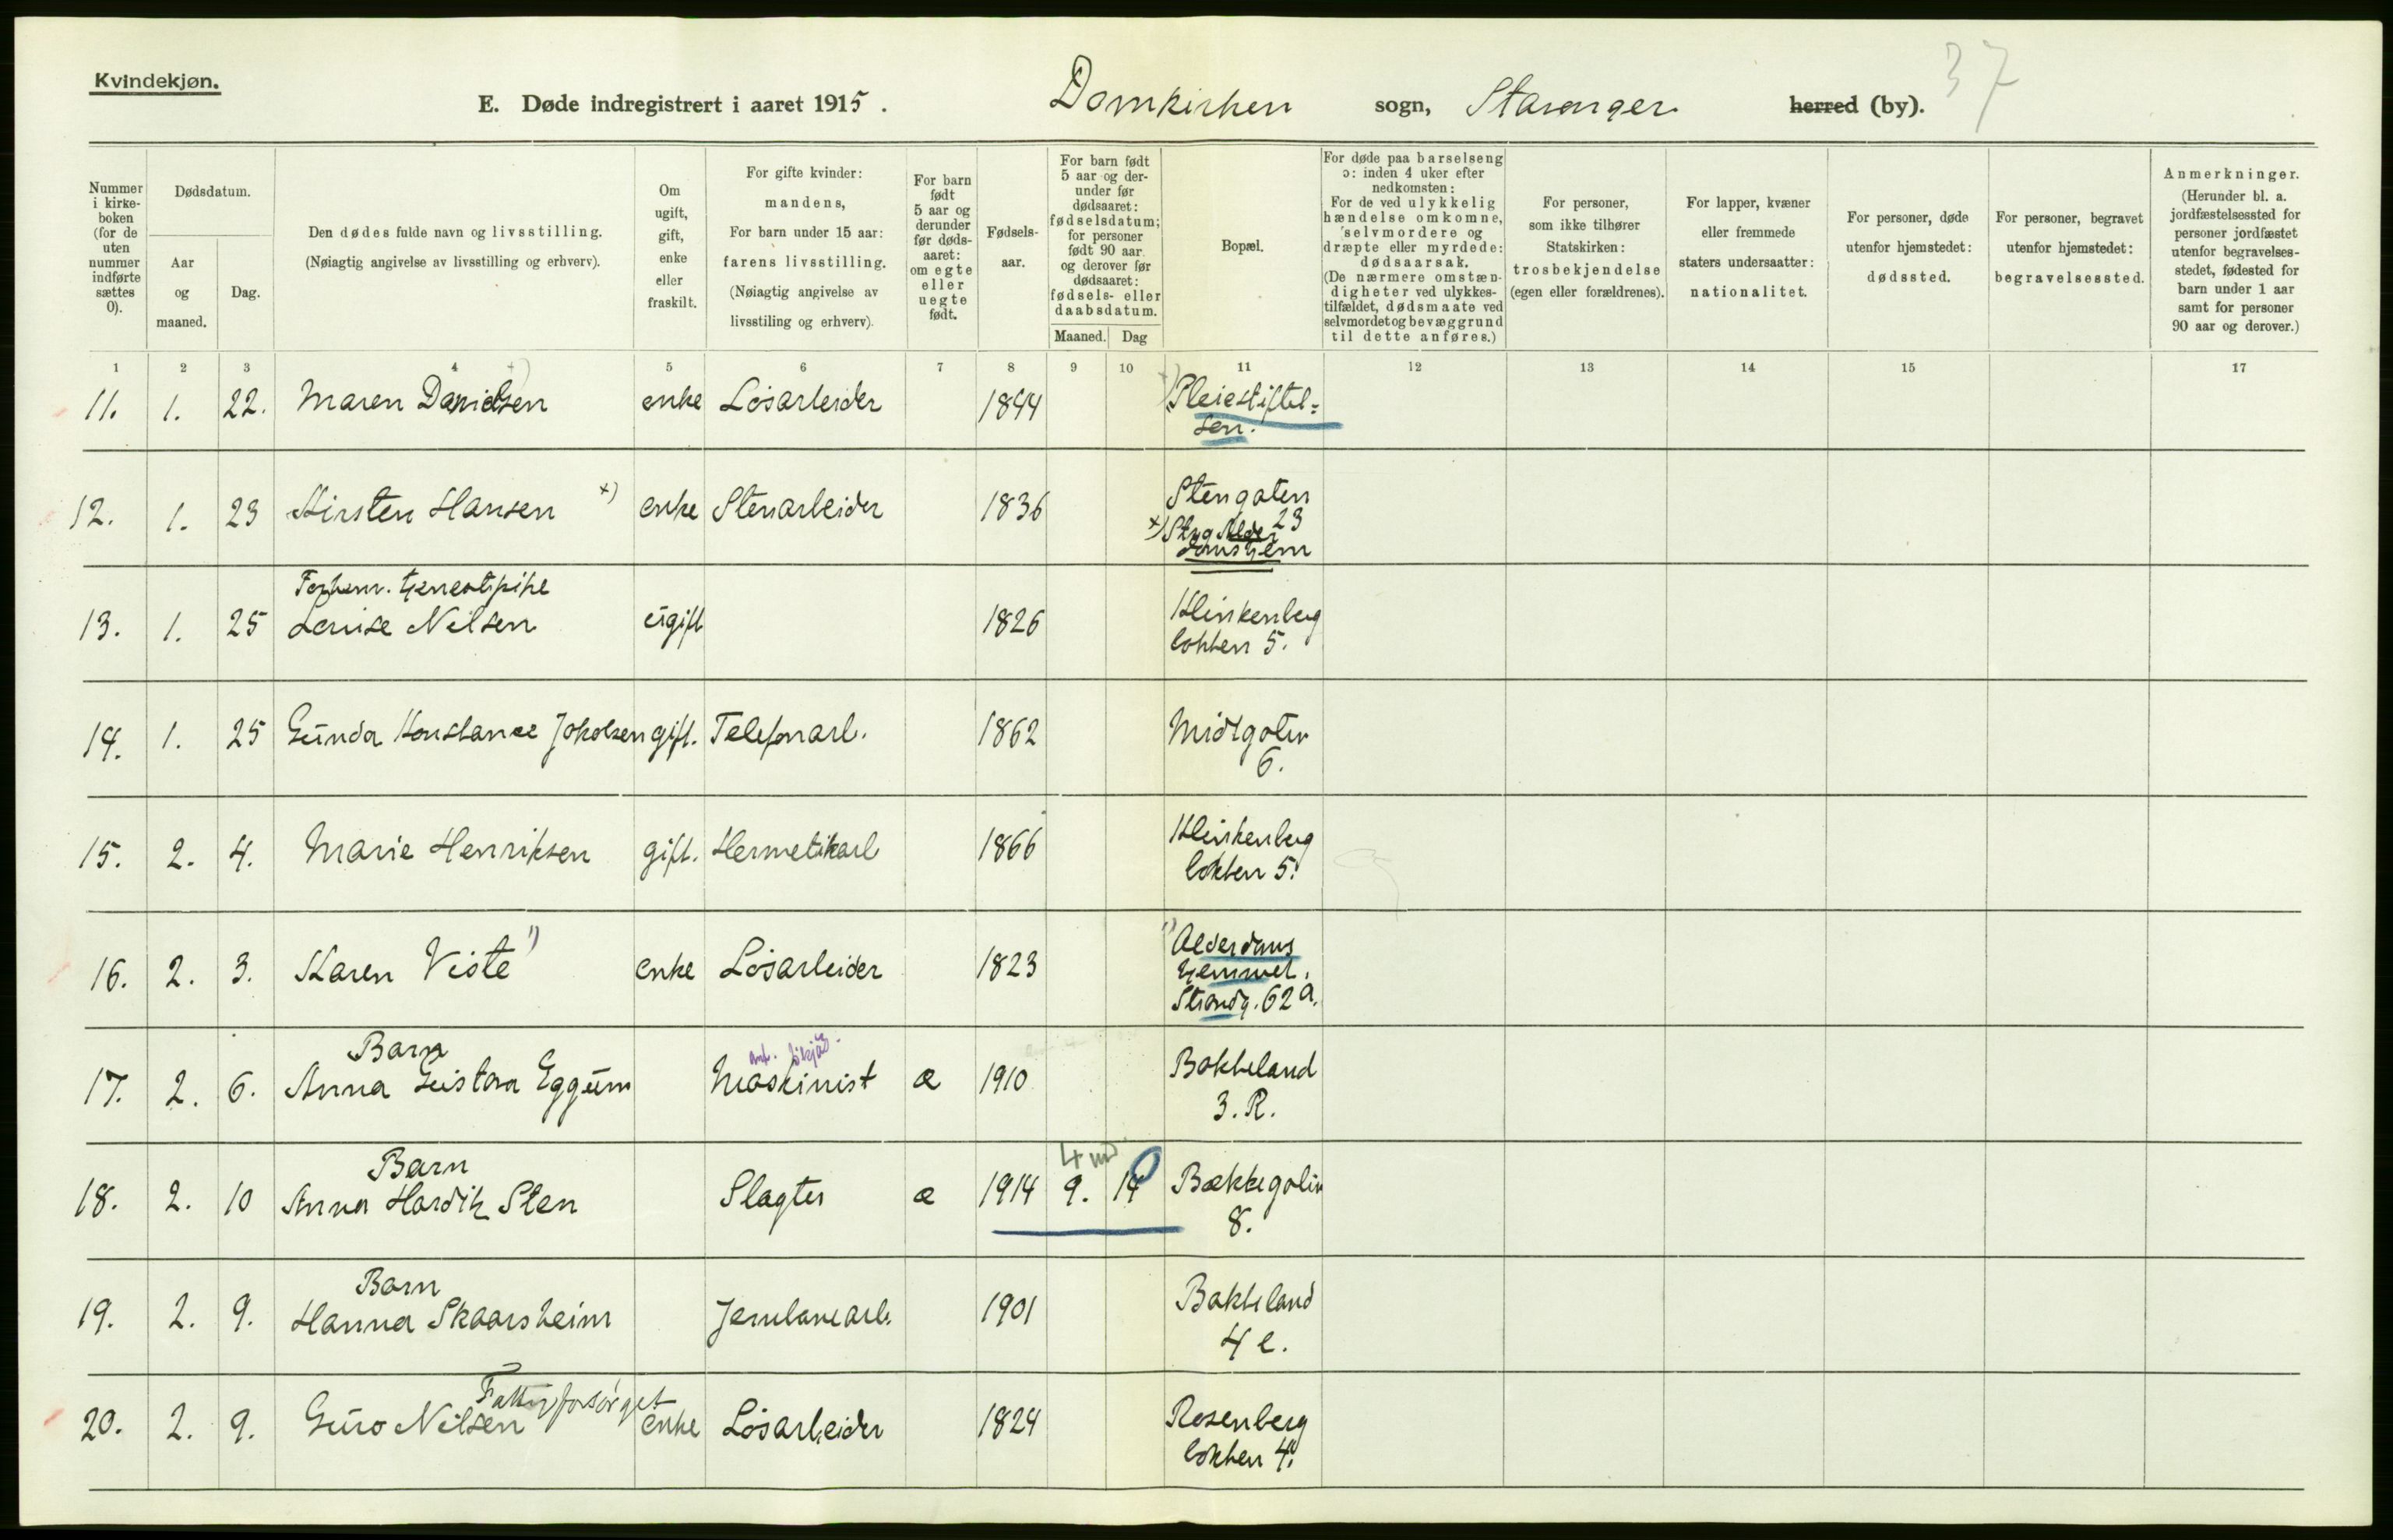 Kvindekjøn.
E. Døde indregistrert i aaret 1915. Domkirken sogn, Stavanger herred (by). 37
Nummer i kirke-boken (for de uten nummer indførte sættes 0).
Dødsdatum.
Aar og maaned.
Dag.
Den dødes fulde navn og livsstilling.
(Nøiagtig angivelse av livsstilling og erhverv).
Om ugift, gift, enke eller fraskilt.
For gifte kvinder: mandens,
For barn under 15 aar: farens livsstilling.
(Nøiagtig angivelse av livsstiling og erhverv).
For barn født 5 aar og derunder før døds-aaret: om egte eller uegte født.
Fødsels-aar.
For barn født 5 aar og der-under før dødsaaret: fødselsdatum; for personer født 90 aar og derover før dødsaaret: fødsels- eller daabsdatum.
Maaned. Dag
Bopæl.
For døde paa barselseng ɔ: inden 4 uker efter nedkomsten:
For de ved ulykkelig hændelse omkomne, selvmordere og dræpte eller myrdede: dødsaarsak.
(De nærmere omstæn-digheter ved ulykkes-tilfældet, dødsmaate ved selvmordet og bevæggrund til dette anføres.)
For personer, som ikke tilhører Statskirken: trosbekjendelse (egen eller forældrenes).
For lapper, kvæner eller fremmede staters undersaatter: nationalitet.
For personer, døde utenfor hjemstedet: dødssted.
For personer, begravet utenfor hjemstedet: begravelsessted.
Anmerkninger.
(Herunder bl. a. jordfæstelsessted for personer jordfæstet utenfor begravelses-stedet, fødested for barn under 1 aar samt for personer 90 aar og derover.)
1 2 3 4 5 6 7 8 9 10 11 12 13 14 15 17
11. 1. 22. Maren Danielsen +) enke Løsarbeider 1844 +) Pleiestiftel=
sen.
12. 1. 23 Kirsten Hansen +) enke Stenarbeider 1836 Stengaten
23
+)
domshjem
Forhenv. tjenestpike
13. 1. 25 Louise Nilsen ugift 1826 Klinkenberg
løkken 5.
14. 1. 25 Gunda Konstance Jakobsen gift. Telefonarb. 1862 Midtgaten
6.
15. 2. 4. Marie Henriksen gift. Hermetikarb 1866 Klinkenberg
løkken 5.
16. 2. 3. Karen Viste 1) enke Løsarbeider 1823 1) Alderdoms
hjemmet.
Strandg. 62a.
Barn
17. 2. 6. Anna Gustava Eggum Maskinist æ 1910 Bakkeland
3. R.
Barn 4 md
18. 2. 10 Anna Hardik Sten Slagter æ 1914 9. 14 Bækkegaten
8.
Barn
19. 2. 9. Hanna Skaarsheim Jernbanearb. 1901 Bakkeland
4 e.
Fattigforsørget
20. 2. 9. Guro Nilsen enke Løsarbeider 1824 Rosenberg
løkken 4.